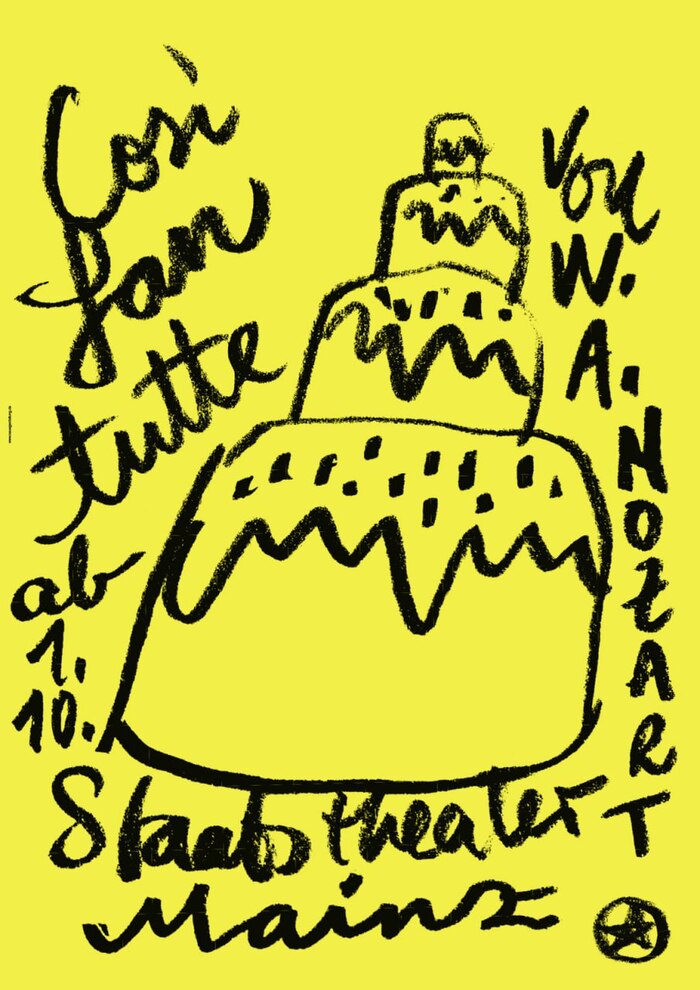 Così
fan
tutte
ab
1.
10.
von
W.
A.
MOZART
Staatstheater
Mainz